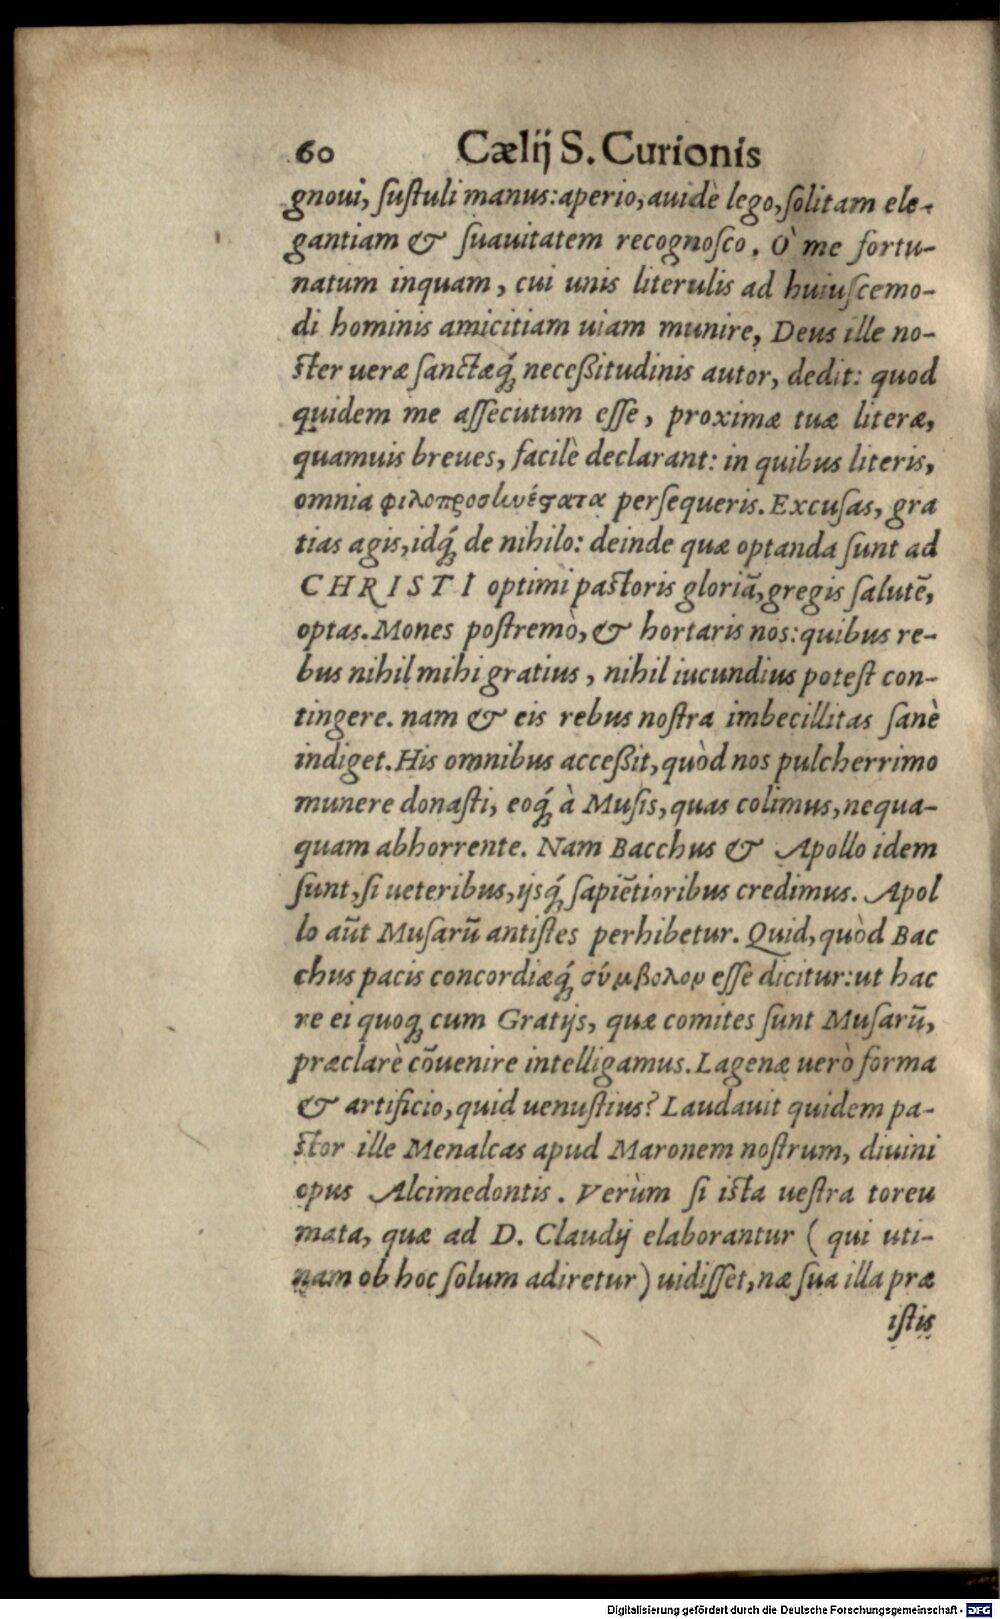 60 Cælij S. Curionis
gnoui, ſuſtuli manus: aperio, auidè lego, ſolitam ele-
gantiam & ſuauitatem recognoſco. O' me fortu-
natum inquam, cui unis literulis ad huiuſcemo-
di hominis amicitiam uiam munire, Deus ille no-
ſter ueræ ſanctæq́; neceßitudinis autor, dedit: quod
quidem me aſſecutum eſſe, proximæ tuæ literæ,
quamuis breues, facilè declarant: in quibus literis,
omnia φιλοπροσηνέστατα perſequeris. Excuſas, gra
tias agis, idq́; de nihilo: deinde quæ optanda ſunt ad
CHRISTI optimi paſtoris gloriã, gregis ſalutẽ,
optas. Mones poſtremò, & hortaris nos: quibus re-
bus nihil mihi gratius, nihil iucundius poteſt con-
tingere. nam & eis rebus noſtra imbecillitas ſanè
indiget. His omnibus acceßit, quòd nos pulcherrimo
munere donaſti, eoq́; à Muſis, quas colimus, nequa-
quam abhorrente. Nam Bacchus & Apollo idem
ſunt, ſi ueteribus, ijsq́; ſapiẽtioribus credimus. Apol
lo aũt Muſarũ antiſtes perhibetur. Quid, quòd Bac
chus pacis concordiæq́; σύμβολον eſſe dicitur: ut hac
re ei quoq; cum Gratijs, quæ comites ſunt Muſarũ,
præclarè cõuenire intelligamus. Lagenæ uerò forma
& artificio, quid uenuſtius? Laudauit quidem pa-
ſtor ille Menalcas apud Maronem noſtrum, diuini
opus Alcimedontis. Verùm ſi iſta ueſtra toreu
mata, quæ ad D. Claudij elaborantur ( qui uti-
nam ob hoc ſolum adiretur) uidiſſet, næ ſua illa præ
iſtis
Digitalisierung gefördert durch die Deutsche Forschungsgemeinschaft - DFG